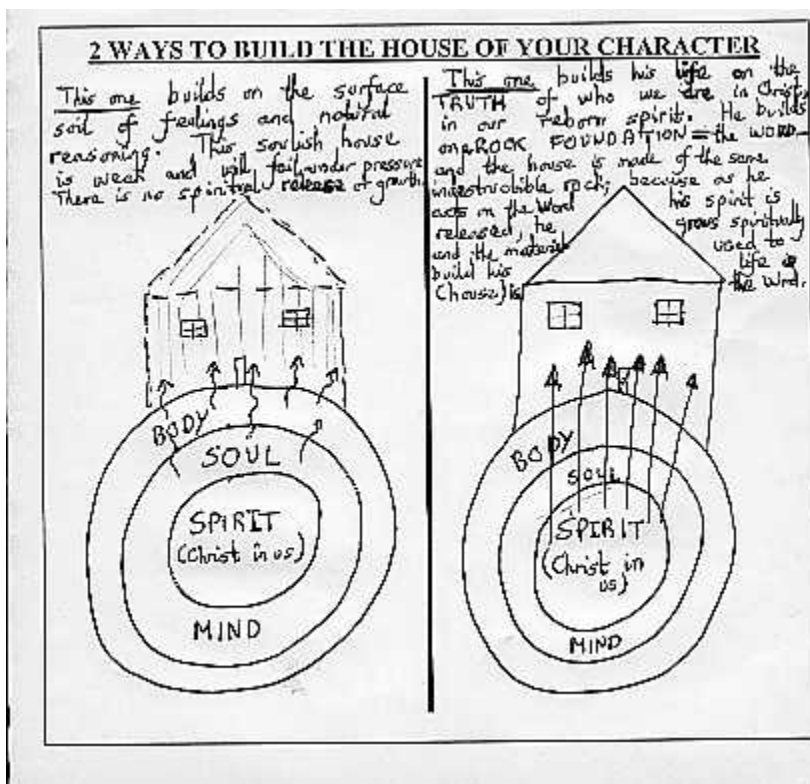 2 WAYS TO BUILD THE HOUSE OF YOUR CHARACTER
This one builds on the surface
soil of feelings and natural
reasoning. This soulish house
is weak and will fail under pressure
There is no spiritual release of growth.
BODY
SOUL
SPIRIT
(Christ in us)
MIND
This one builds his life on the
TRUTH of who we are in Christ,
in our reborn spirit. He builds
on a ROCK FOUNDATION = the WORD
and the house is made of the same
indestructible rock; because as he
acts on the Word his spirit is
released, he grows spiritually
and the material used to
build his life is
(house) is the Word.
BODY
SOUL
SPIRIT
(Christ in
us)
MIND